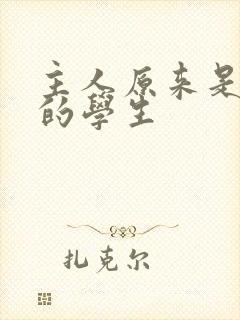 主人原來是
的學生
扎克尔